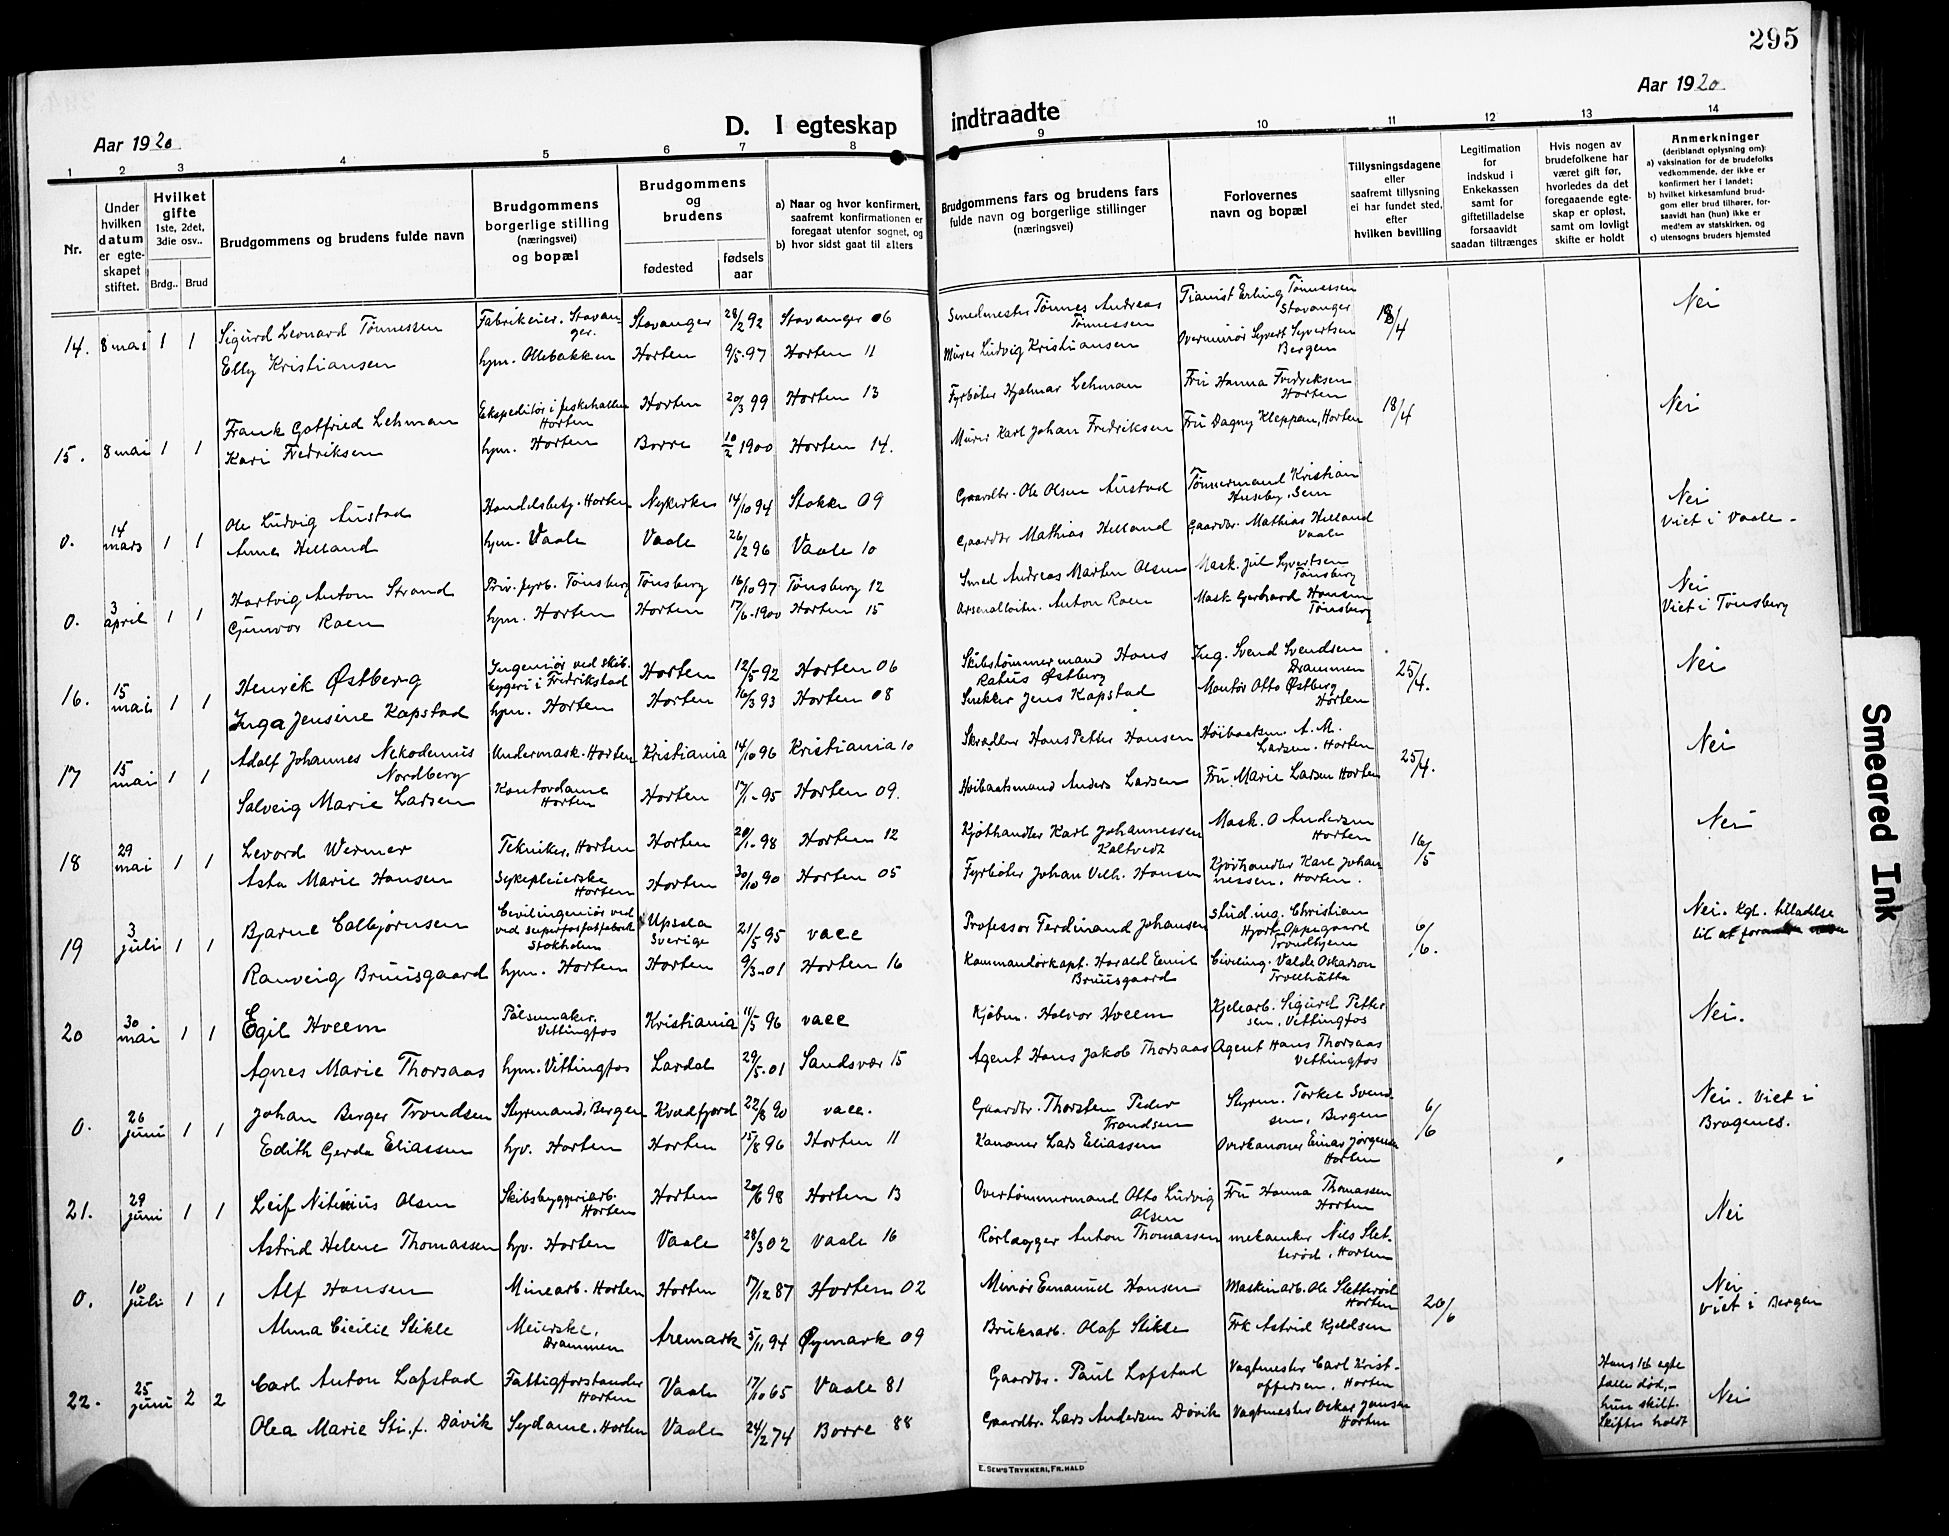 295
Aar 1920
D. I egteskap
indtraadte
Aar 1920
1 2 3 4 5 6 7 8
9 10 11 12 13 14
Nr.
Under hvilken datum er egteskapet stiftet.
Hvilket gifte
1ste, 2det, 3die osv..
Brdg.. Brud
Brudgommens og brudens fulde navn
Brudgommens borgerlige stilling (næringsvei) og bopæl
Brudgommens og brudens
fødested
fødselsaar
a) Naar og hvor konfirmert, saafremt konfirmationen er foregaat utenfor sognet, og
b) hvor sidst gaat til alters
Brudgommens fars og brudens fars
fulde navn og borgerlige stillinger
(næringsvei)
Forlovernes
navn og bopæl
Tillysningsdagene eller saafremt tillysning ei har fundet sted, efter hvilken bevilling
Legitimation for indskud i Enkekassen samt for giftetilladelse forsaavidt saadan tiltrænges
Hvis nogen av brudefolkene har været gift før, hvorledes da det foregaaende egteskap er opløst, samt om lovligt skifte er holdt
Anmerkninger
(deriblandt oplysning om):
a) vaksination for de brudefolks vedkommende, der ikke er konfirmert her i landet;
b) hvilket kirkesamfund brudgom eller brud tilhører, forsaavidt han (hun) ikke er medlem av statskirken, og
c) utensogns bruders hjemsted
14. 8 mai 1 1 Sigurd Leonard Tønnessen Fabrikeier. Stavanger. Stavanger 28/2 92 Stavanger 06 Smedmester Tönnes Andreas Tönnessen Pianist Erling Tönnessen Stavanger 18/4 Nei
Elly Kristiansen hjm. Ollebakken Horten 9/5-97 Horten 11 Murer Ludvig Kristiansen Overminör Syvert Syvertsen Bergen
15. 8 mai 1 1 Frank Gotfried Lehman Ekspeditör i fiskehallen Horten Horten 20/3 99 Horten 13 Fyrböter Hjalmar Lehman Fru Hanna Fredriksen Horten 18/4 Nei
Kari Fredriksen hjm. Horten Borre 10/2 1900 Horten 14. Murer Karl Johan Fredriksen Fru Dagny Kleppan, Horten
0. 14 mars 1 1 Ole Ludvig Austad Handelsbetj. Horten Nykirke 14/10 94 Stokke 09 Gaardbr. Ole Olsen Austad Tömmermand Kristian Huseby, Sem Nei
Anna Helland hjm. Vaale Vaale 26/2 96 Vaale 10 Gaardbr Mathias Helland Gaardbr. Mathias Helland Vaale Viet i Vaale -
0. 3 april 1 1 Hartvig Anton Strand Priv. fyrb. Tönsberg Tönsberg 16/10 97 Tönsberg 12 Smed Andreas Marten Olsen Mask. Jul Syvertsen Tönsberg Nei
Gunvor Roen hjm. Horten Horten 17/6-1900 Horten 15 Arsenalarbeider. Anton Roen Mask Gerhard Hansen Tönsberg Viet i Tönsberg
16. 15 mai 1 1 Henrik Østberg Ingeniör ved skibbyggeri i Fredrikstad Horten 12/5 92 Horten 06 Skibstömmermand Hans Ratius Østberg Ing. Svend Svendsen Drammen 25/4. Nei
Inga Jensine Kapstad hjm. Horten Horten 16/3 93 Horten 08 Snekker Jens Kapstad Montör Otto Østberg Horten
17 15 mai 1 1 Adolf Johannes Nekodemus Nordberg Undermask. Horten Kristiania 14/10 96 Kristiania 10 Skrædder Hans Petter Hansen Höibaatsm. A. M. Larsen. Horten 25/4. Nei
Salveig Marie Larsen Kontordame Horten Horten 17/1-95 Horten 09. Höibaatsmand Anders Larsen Fru Marie Larsen Horten
18 29 mai 1 1 Levord Wermer Tekniker. Horten Horten 20/1-98 Horten 12 Kjöthandler Karl Johannessen Kaltvedt Mask. O Andersen Horten 16/5 Nei
Asta Marie Hansen Sykepleierske Horten Horten 30/10 90 Horten 05 Fyrböter Johan Vilh. Hansen Kjöthandler Karl Johannessen. Horten.
19 3 juli 1 1 Bjarne Calbjørnsen Civilingeniör ved superfosfatfabrik Stokholm Upsala Sverige 21/5 95 vacc Professor Ferdinand Johansen Stud.ing. Christian Hjort Oppegaard Trondhjem 6/6. Nei. Kgl. tilladelse til
Ranveig Bruusgaard hjm. Horten Horten 9/3-01 Horten 16 Kommandörkapt. Harald Emil Bruusgaard Civiling. Valde Oskarson Trollhätta
20 30 mai 1 1 Egil Hveem Pölsemaker. Vittingfos Kristiania 11/5 96 vacc Kjöbm. Halvor Hveem Kjelearb. Sigurd Pettersen, Vittingfos Nei.
Agnes Marie Thorsaas hjm. Vittingfos Lardal 29/5-01 Sandsvær 15 Agent Hans Jakob Thorsaas Agent Hans Thorsaas Vittingfos
0. 26 juni 1 1 Johan Berger Trondsen Styrmand, Bergen Kvædfjord 22/8 90 vacc. Gaardbr. Thorsten Peder Trondsen Styrm. Torkel Svendsen, Bergen 6/6 Nei. Viet i
Edith Gerda Eliassen hjv. Horten Horten 15/8 96 Horten 11 Kanoner Lars Eliassen Overkanoner Einar Jörgensen Horten Bragenes.
21. 29 juni 1 1 Leif Nitinius Olsen Skibsbyggeriarb. Horten Horten 20/6 98 Horten 13 Overtömmermand Otto Ludvig Olsen Fru Hanna Thomassen Horten Nei
Astrid Helene Thomassen hjv. Horten Vaale 28/3 02 Vaale 16 Rörlægger Anton Thomassen mekaniker Nils Sletteröd, Horten
0. 10 juli 1 1 Alf Hansen Minearb. Horten Horten 17/12 87 Horten 02 Minör Emanuel Hansen Maskinarb. Ole Sletteröd Horten 20/6 Nei.
Alma Cicilie Stikle Meierske, Drammen Aremark 5/11 94 Øymark 09 Bruksarb. Olaf Stikle Frk Astrid Kjeldsen viet i Bergen
22. 25 juni 2 2 Carl Anton Lofstad Fattigforstander Horten Vaale 17/10 65 Vaale 81 Gaardbr. Paul Lofstad Vagtmester Carl Kristoffersen, Horten Hans 1st egtefælle död, - hun skilt. Skifte holdt Nei
Olea Marie Sti. f. Dövik Sydame. Horten Vaale 24/2 74 Borre 88 Gaardbr. Lars Andersen Dövik Vagtmester Oskar Jansen Horten
E. SEM'S TRYKKERI, FR.HALD
Smeared Ink